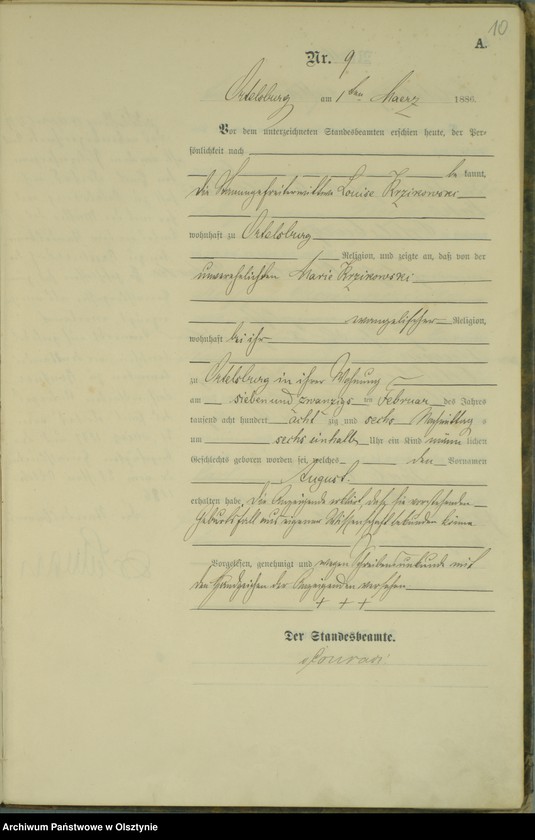 10
A.
Nr. 9
Ortelsburg am 1ten Maerz 1886.
Vor dem unterzeichneten Standesbeamten erschien heute, der Per-
sönlichkeit nach
be kannt,
die Louise Krzikowski
wohnhaft zu Ortelsburg
Religion, und zeigte an, daß von der
unverehelichten Marie Krzikowski
evangelischer Religion,
wohnhaft bei ihr
zu Ortelsburg in ihrer Wohnung
am sieben und zwanzigs ten Februar des Jahres
tausend acht hundert acht zig und sechs Nachmittags
um sechs einhalb Uhr ein Kind männ lichen
Geschlechts geboren worden sei, welches den Vornamen
August
erhalten habe. Die Anzeigende erklärt, daß sie vorstehenden
Geburtsfall aus eigener Wissenschaft bekunden könne
Vorgelesen, genehmigt und wegen Schreibensunkunde mit
den Handzeichen der Anzeigenden versehen
+ + +
Der Standesbeamte.
Conrad
Archiwum Państwowe w Olsztynie